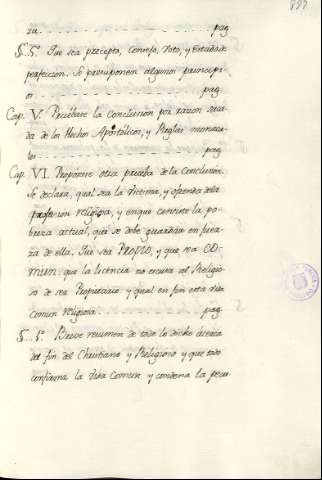 za - - - - - - - - - - - - - - - - - - - - pag
§. 5. Que sea precepto, Consejo, Voto, y Estado de
perfeccion. Se presuponen algunos principi-
o - - - - - - - - - - - - - - - - - - - - pag.
Cap. V. Pruébase la Conclusion por razon saca-
da de los Hechos Apostólicos, y Reglas monaca-
les - - - - - - - - - - - - - - - - - - pag
Cap. VI. Proponese otra prueba de la Conclusion.
Se declara, qual sea la Victima, y ofrenda de la
profesion religiosa, y en que consiste la po-
breza actual, que se debe guardar en fuer-
za de ella. Que sea PROPIO, y que sea CO-
MUN: que la licencia no escusa al Religio-
so de ser Propietario y qual en fin esta vida
comun religiosa - - - - - - - - - - - pag.
§. 5º. Breve resumen de todo lo dicho acerca
del fin del Christiano y Religioso y que todo
confirma la Vida Comun y condena la pecu-